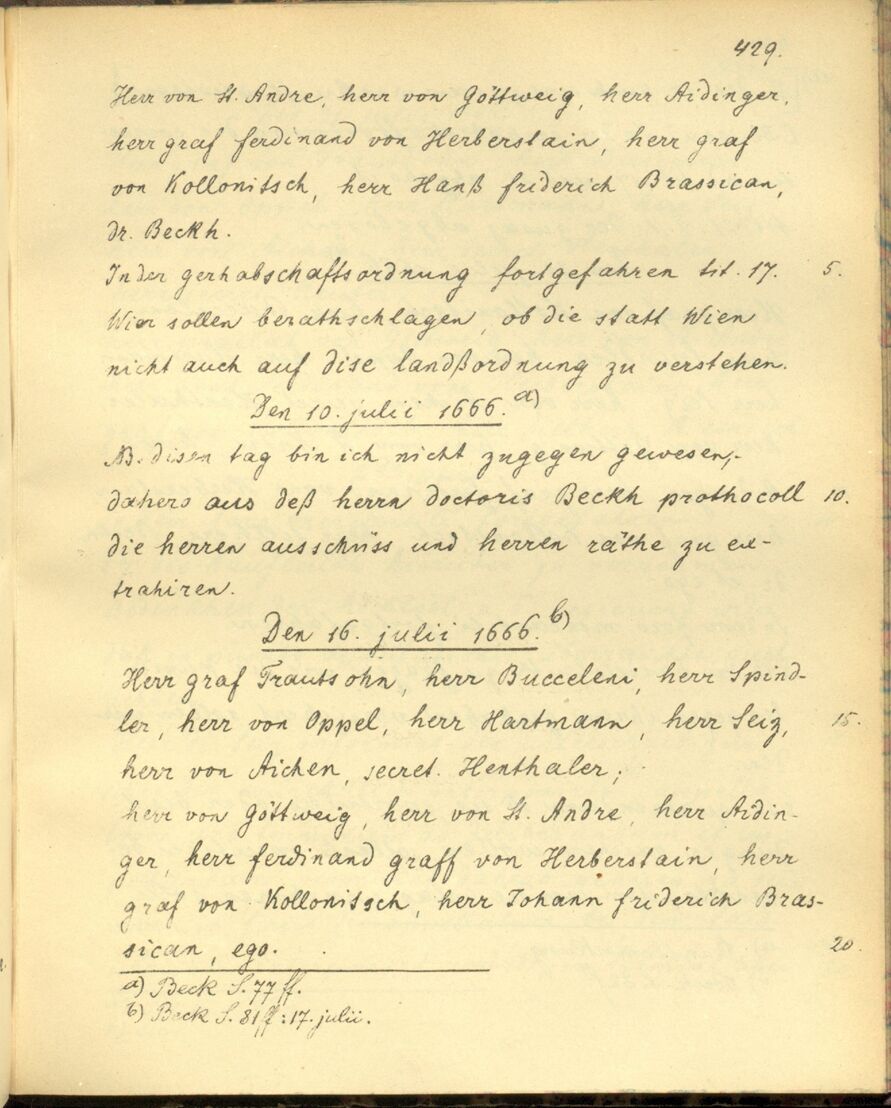 429.
Herr von St. Andre, herr von Göttweig, herr Aidinger,
herr graf ferdinand von Herberstain, herr graf
von Kollonitsch, herr Hanß friderich Brassican,
dr. Beckh.
In der gerhabschaftsordnung fortgefahren tit. 17. 5.
Wier sollen berathschlagen, ob die statt Wien
nicht auch auf dise landßordnung zu verstehen.
Den 10. julii 1666. a)
NB. disen tag bin ich nicht zugegen gewesen,
dahero aus deß herrn doctoris Beckh prothocoll 10.
die herren ausschüss und herren räthe zu ex-
trahiren.
Den 16. julii 1666. b)
Herr graf Trautsohn, herr Bucceleni, herr Spind-
ler, herr von Oppel, herr Hartmann, herr Seiz, 15.
herr von Aichen, secret. Henthaler;
herr von Göttweig, herr von St. Andre, herr Aidin-
ger, herr ferdinand graff von Herberstain, herr
graf von Kollonitsch, herr Johann friderich Bras-
sican, ego. 20.
a) Beck S. 77 ff.
b) Beck S. 81 ff: 17. julii.